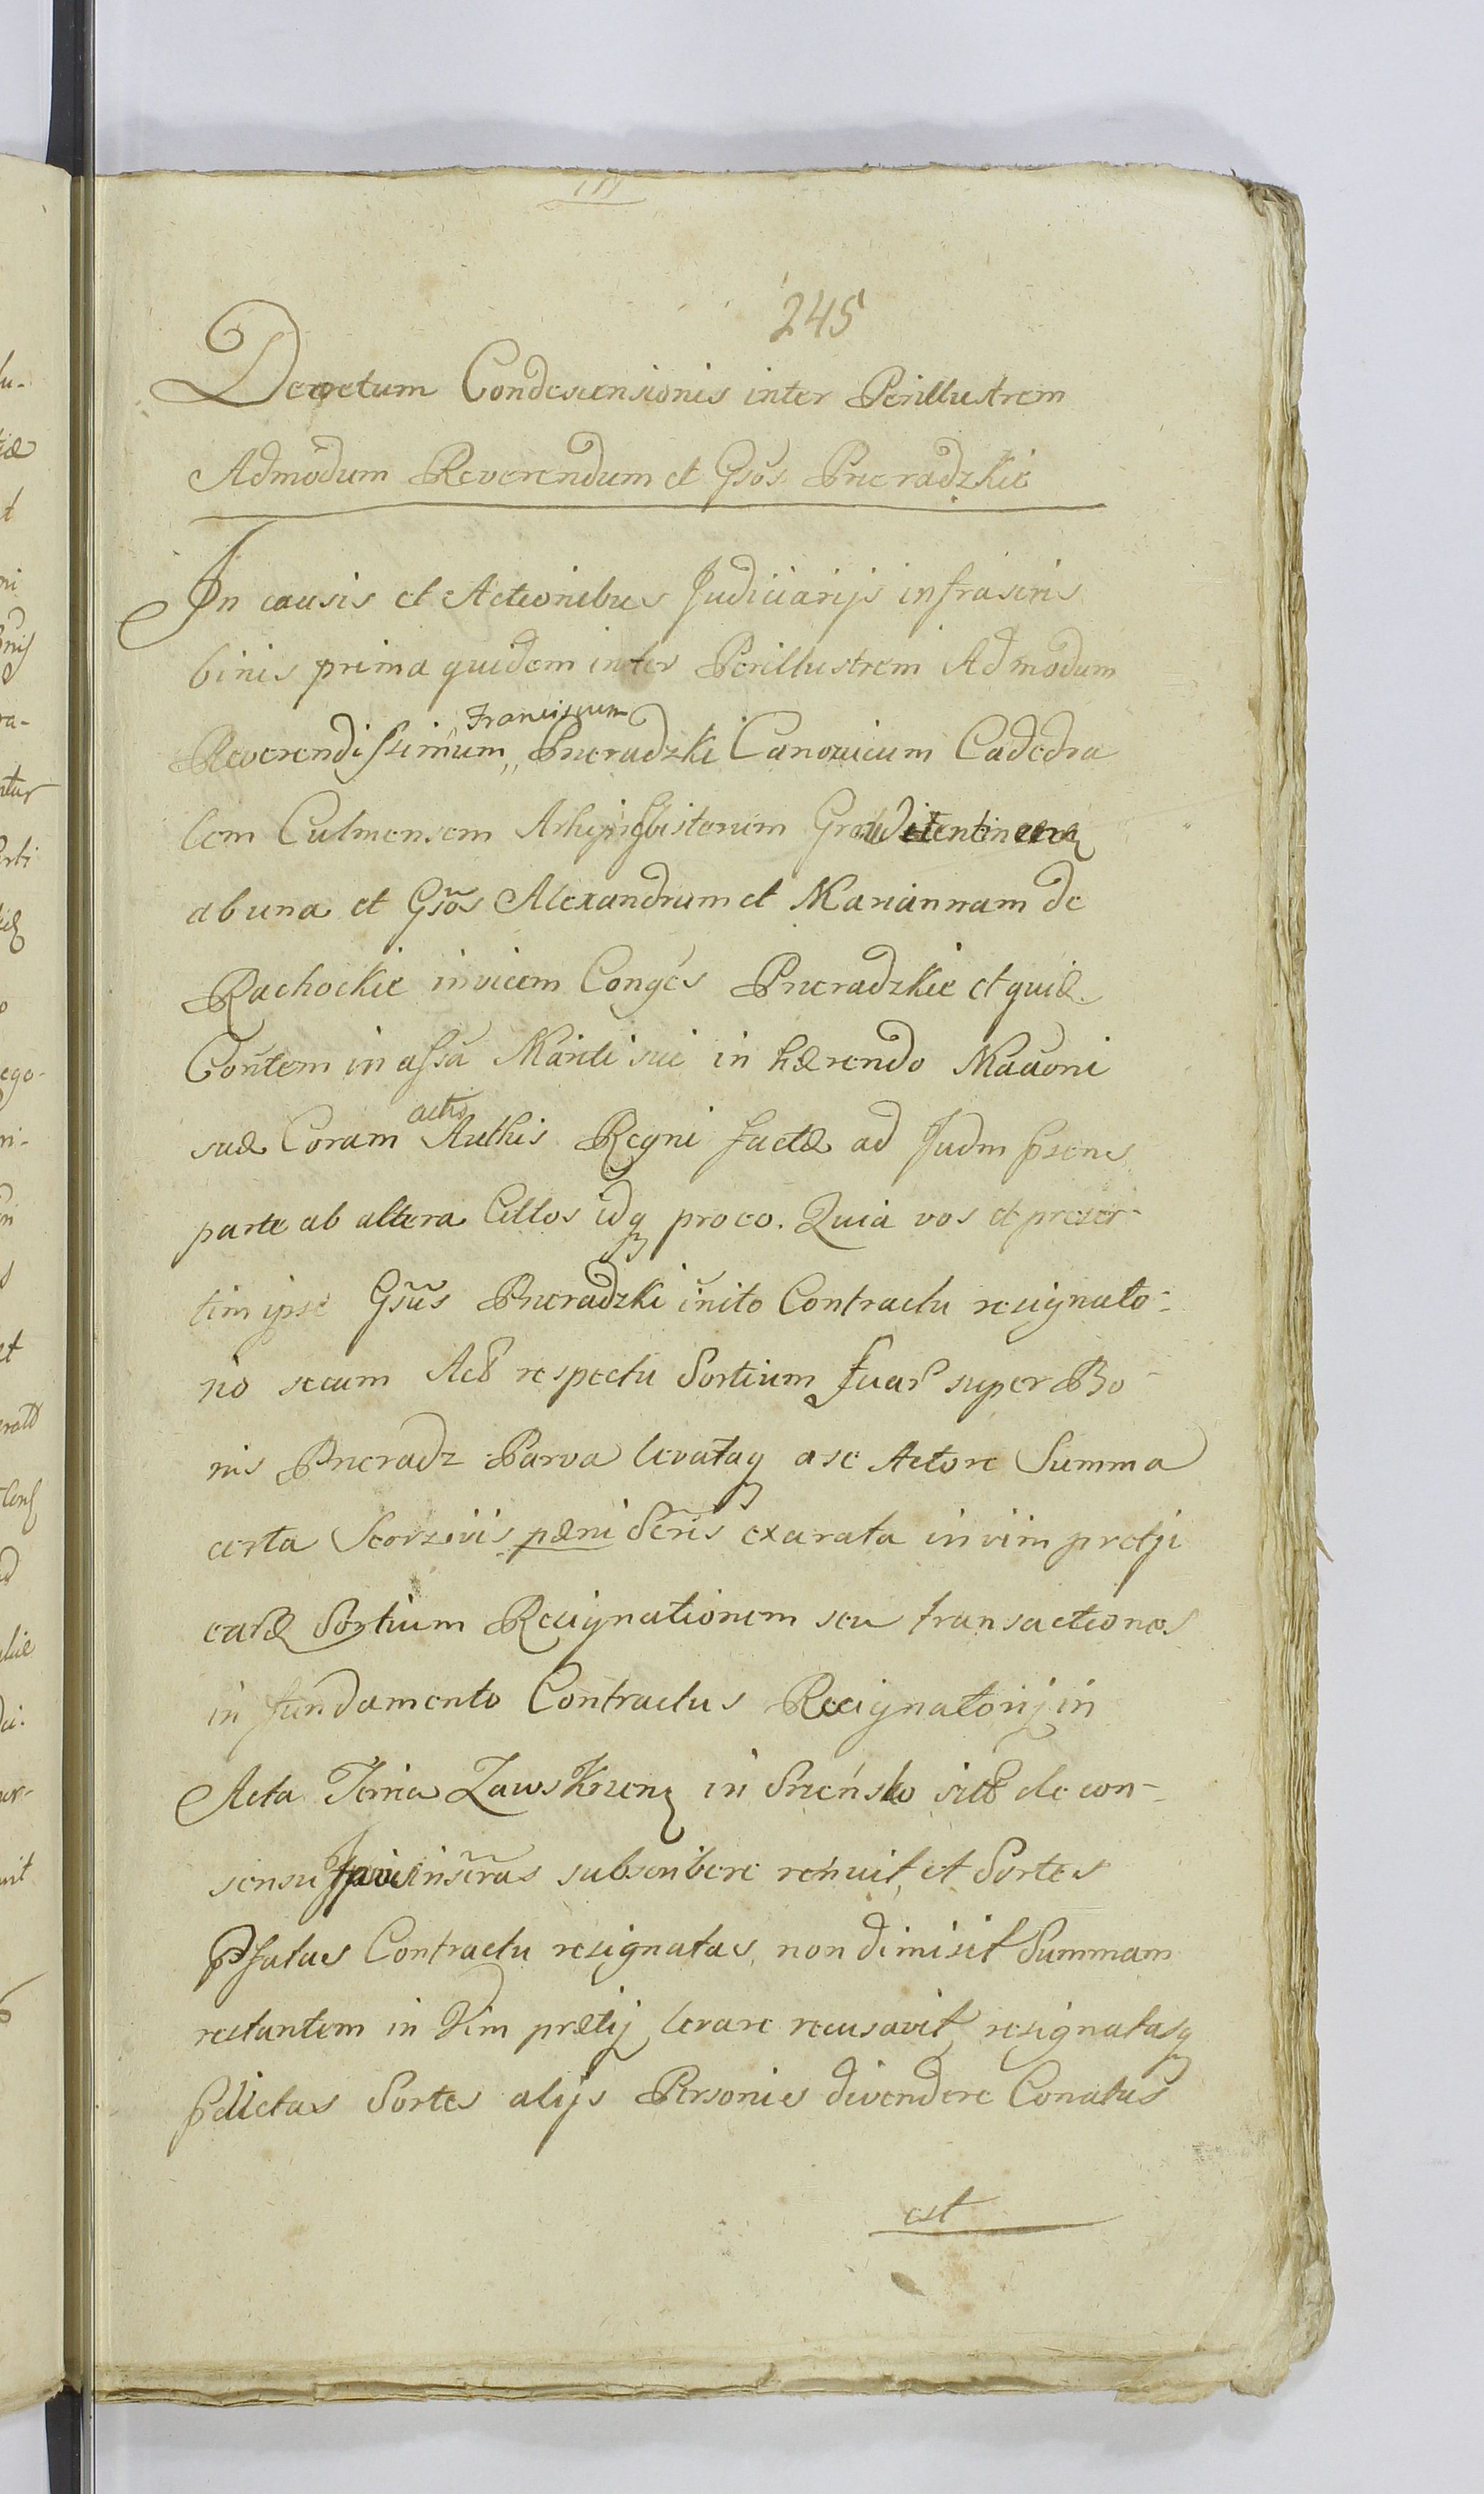 245
Decretum Condescensionis inter Perillustrem
Admodum Reverendum et Gsos Pneradzkie
In causis et Actionibus Judiciarijs infrascris
binis prima quidem inter Perillustrem Admodum
Franciscum
Reverendissimum,, Pneradzki Canonicum Cadedra
lem Culmensem
ab una et Gsos Alexandrum et Mariannam de
Rachockie invicem Congēs Pneradzkie et quid.
Contem in assā Mariti sui in hærendo
actis
suæ Coram Authis Regni factæ ad Judm psens
parte ab altera Cittos idq pro eo. Quia vos et preser-
tim ipse Gsūs Pneradzki inito Contractu resignato-
rio secum Act respectu Sortium suar super Bo-
nis Pneradz Parva levataq a se Actore Summa
certa Scorzivis pæni Scris exarata in vim pretji
eard Sortium Resignationem seu transactiones
in fundamento Contractus Resignatorij in
Acta Terria Zawskrzen in Srensko sitt de con-
sensu inscras subscribere renuit, et Sortes
Psatas Contractu resignatas, non dimisit Summam
restantem in Vim prætij levare recusavit, resignatasq
pdictas Sortes alijs Personis divendere Conatus
est